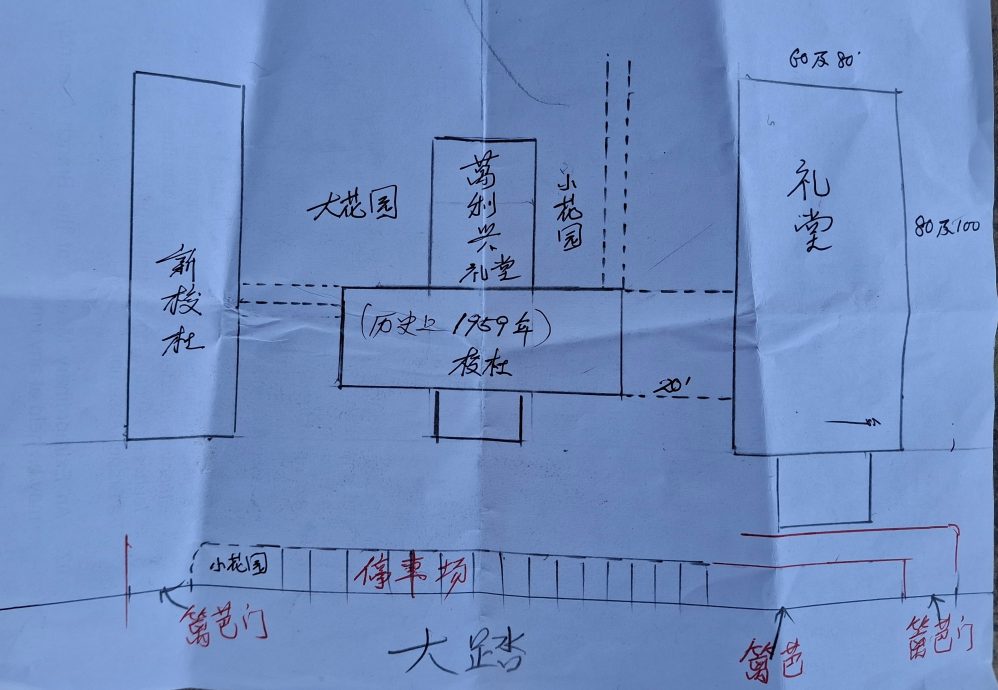 60及80'
礼堂
80及100
大花园
萬利兴
礼堂
小花园
新校杜
(历史上 1959年)
校杜
20'
小花园
停車场
篱芭门
大路
篱芭
篱芭门